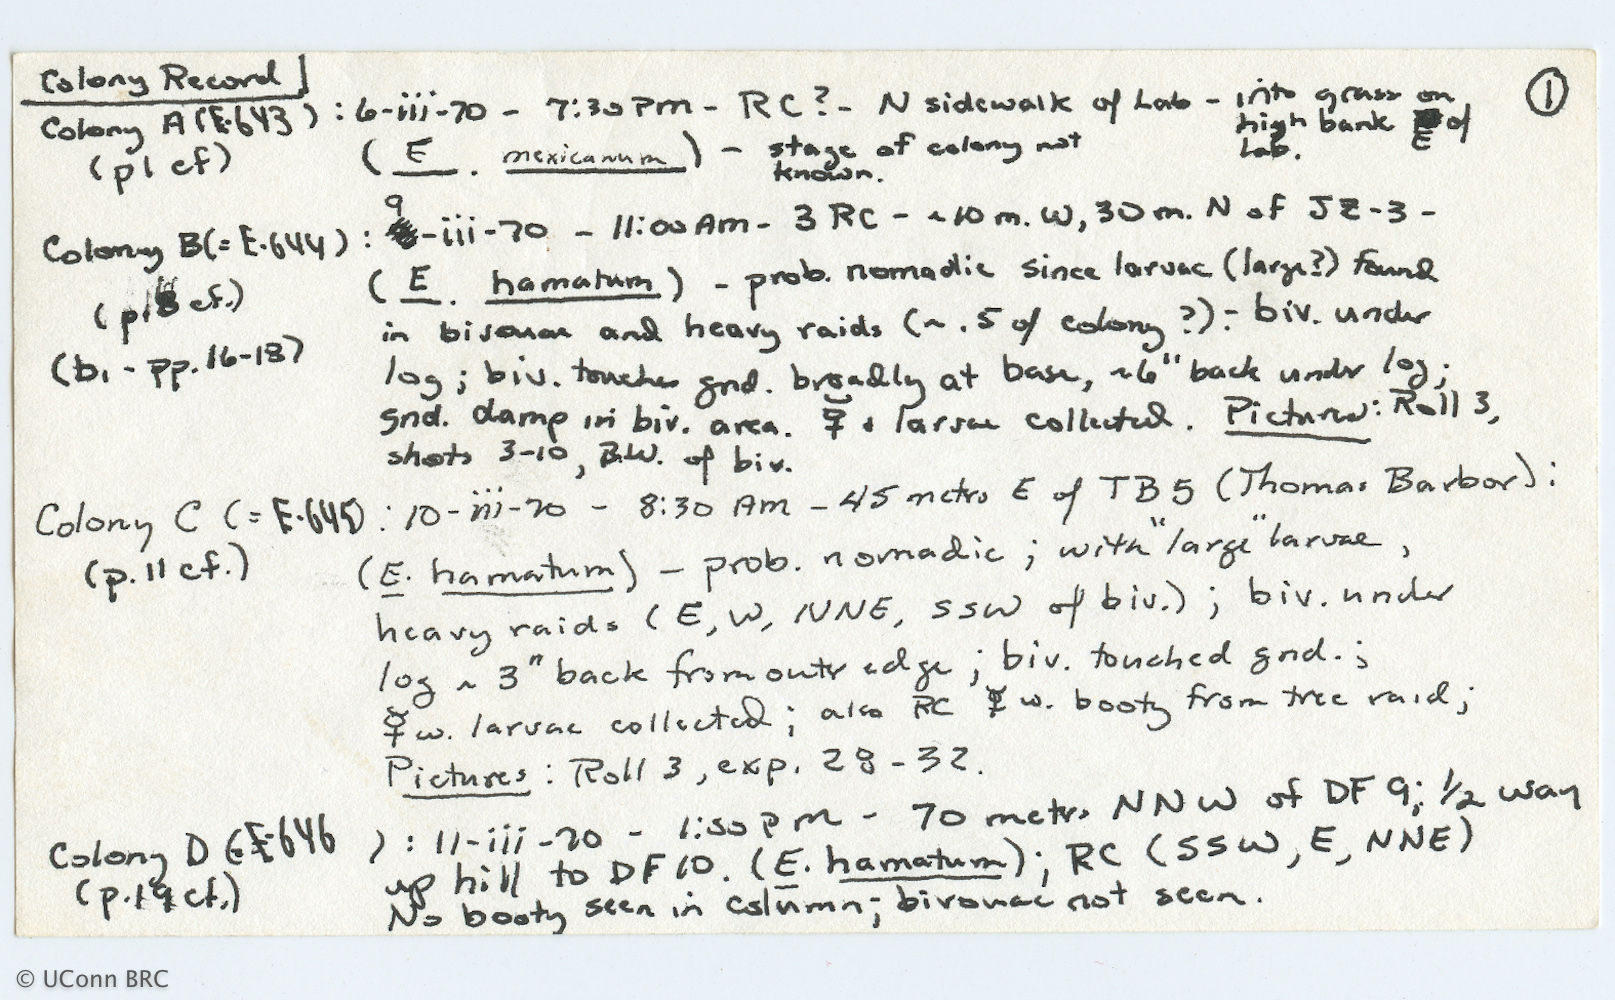 Colony Record
①
Colony A (E-643) : 6-iii-70 - 7:30 PM - RC? - N sidewalk of Lab - into grass on
high bank E of
Lab.
(p1 cf) (E. mexicanum) - stage of colony not
known.
Colony B (= E-644) : 9-iii-70 - 11:00 AM - 3 RC - ~10 m. W, 30 m. N of JZ-3 -
(E. hamatum) - prob. nomadic since larvae (large?) found
(p.8 cf.) in bivouac and heavy raids (~ .5 of colony?) - biv. under
(b1 - pp. 16-18) log; biv. touches gnd. broadly at base, ~6" back under log;
gnd. damp in biv. area. ☿ + larvae collected. Pictures: Roll 3,
shots 3-10, B.W. of biv.
Colony C (= E-645) : 10-iii-70 - 8:30 AM - 45 metrs E of TB5 (Thomas Barbor) :
(p. 11 cf.) (E. hamatum) - prob. nomadic; with "large" larvae,
heavy raids (E, W, NNE, SSW of biv.); biv. under
log ~ 3" back from outr edge; biv. touched gnd.;
☿ w. larvae collected; also RC ☿ w. booty from tree raid;
Pictures: Roll 3, exp. 28-32.
Colony D (E-646) : 11-iii-70 - 1:50 PM - 70 metrs NNW of DF 9; 1/2 way
(p.19 cf.) up hill to DF 10. (E. hamatum); RC (SSW, E, NNE)
No booty seen in column; bivouac not seen.
© UConn BRC